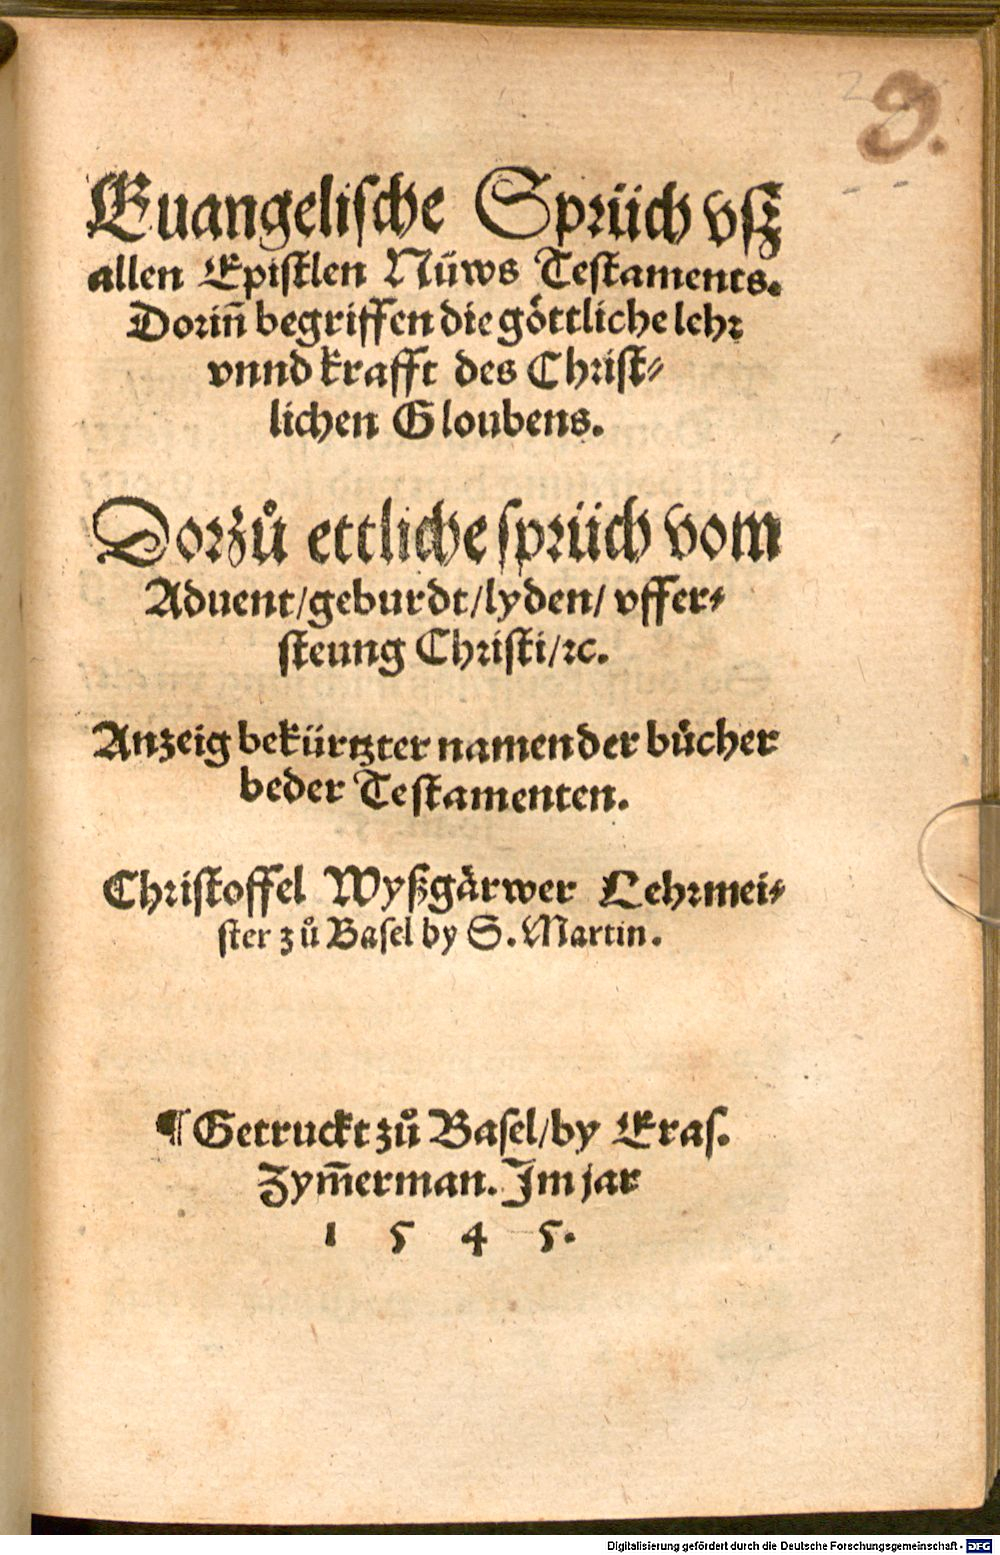 9.
Euangelische Sprüch vſz
allen Epiſtlen Nüws Teſtaments.
Dorin̄ begriffen die göttliche lehr
vnnd krafft des Chriſt⸗
lichen Gloubens.
Dorzů ettliche ſprüch vom
Aduent/geburdt/lyden/ vffer⸗
ſteung Chriſti/ꝛc.
Anzeig bekürtzter namen der bůcher
beder Teſtamenten.
Chriſtoffel Wyßgärwer Lehrmei⸗
ſter zů Baſel by S. Martin.
¶ Getruckt zů Baſel/by Eraſ.
Zym̄erman. Im jar
1 5 4 5.
Digitalisierung gefördert durch die Deutsche Forschungsgemeinschaft - DFG